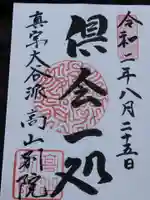 令和二年八月二十五日
倶会一処
真宗大谷派高山別院